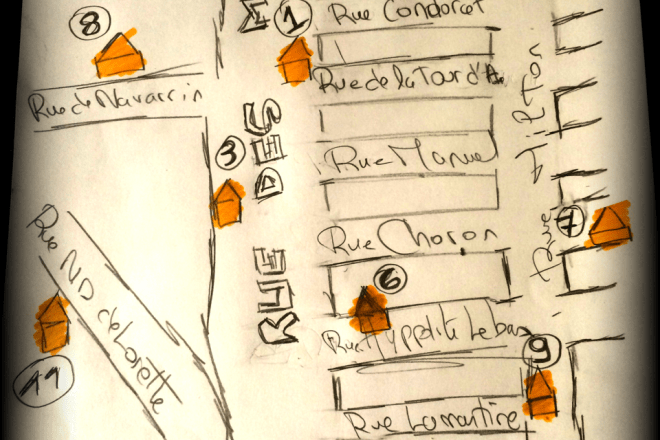 8
1
Rue Condorcet
Rue de la Tour d'A
Rue de Navarrin
RUE DES M
3
Rue Manuel
Rue Choron
7
6
Rue Hyppolite Lebas
Rue ND de Lorette
11
9
Rue Lamartine
Rue